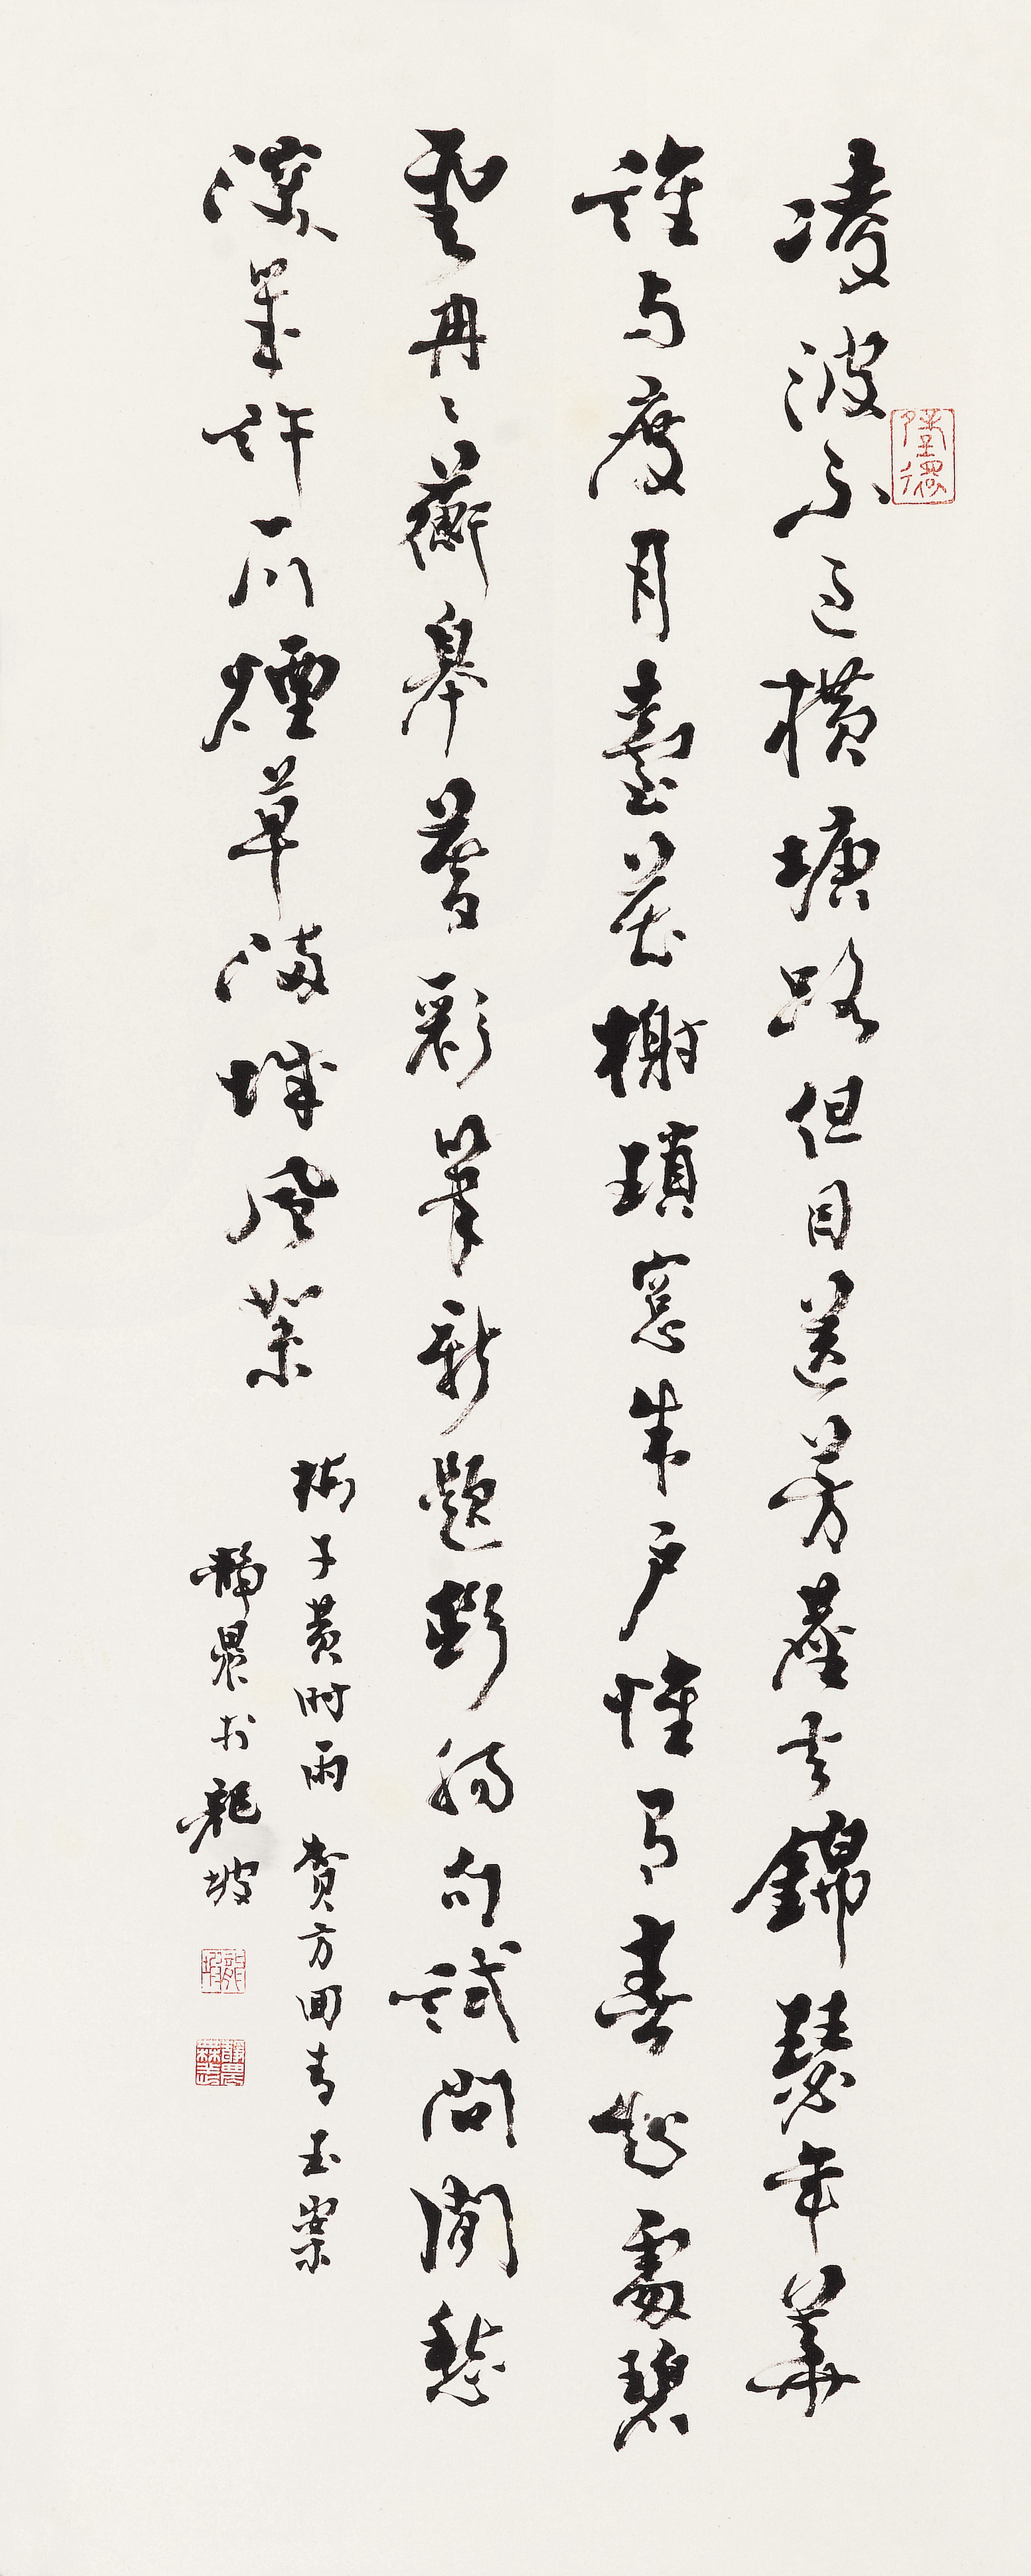 凌波不過橫塘路但目送芳塵去錦瑟年華
誰与度月臺花榭瑣窗朱戶惟有春知處碧
雲冉〻蘅皋暮彩筆新題斷腸句試問閒愁
深幾許一川煙草滿城風絮
梅子黃时雨 賀方回青玉案
靜農於龍坡
龍坡
靜農無恙